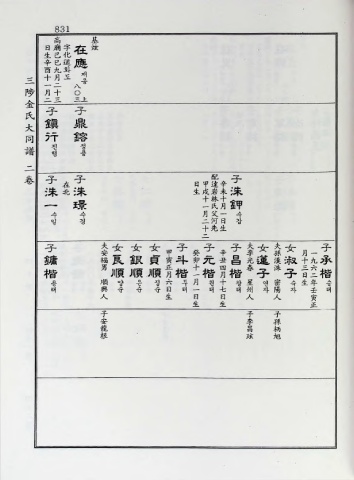 831
三陟金氏大同譜 二卷
基炫
在應 재응
上
八〇三
字化運 화도
高麗己巳九月二十三
日生辛酉十一月二
子鼎鎔 정용
子鎭行 진행
子洙鉀 수갑
辛未十月一日生
配遂岩林氏父河先
甲戌十一月二十二
日生
子洙璟 수경
在北
子洙一 수일
子承楷 승해
一九六二年壬寅正
月十三日生
女淑子 숙자
夫孫漢洙 密陽人
子孫炳旭
女蓮子 연자
夫李元春 星州人
子李昌球
子昌楷 창해
辛丑四月十七日生
子元楷 원해
癸卯十一月一日生
子斗楷 두해
甲寅正月六日生
女貞順 정순
女銀順 은순
女良順 양순
夫安福男 順興人
子安龍植
子鏞楷 용해